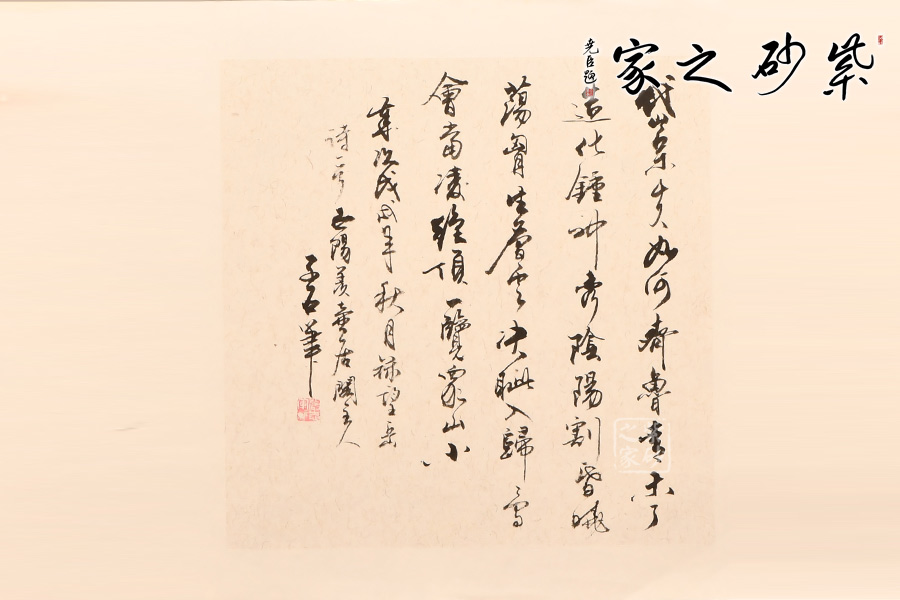 紫砂之家
尧臣題
岱崇夫如何齊魯青未了
造化鍾神秀陰陽割昏曉
蕩胷生層雲决眦入歸鳥
會當凌絕頂一覽眾山小
歲次戊戌年秋月錄望岳
詩一首 陽羨壺居主人
子石筆